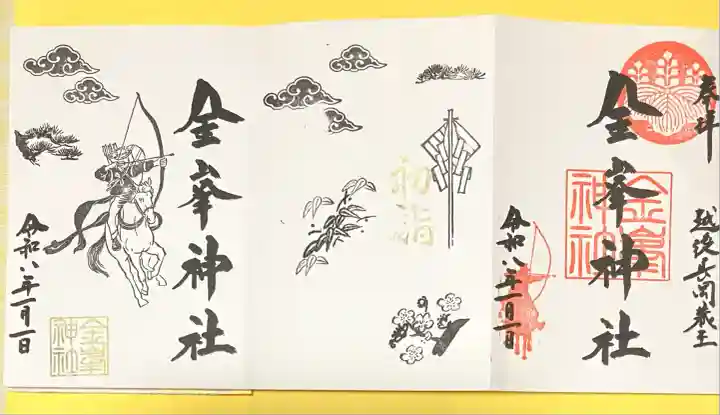 奉拝
越後長岡蔵王
金峯神社
金峯
神社
令和八年一月一日
初詣
金峯神社
令和八年一月一日
金峯
神社